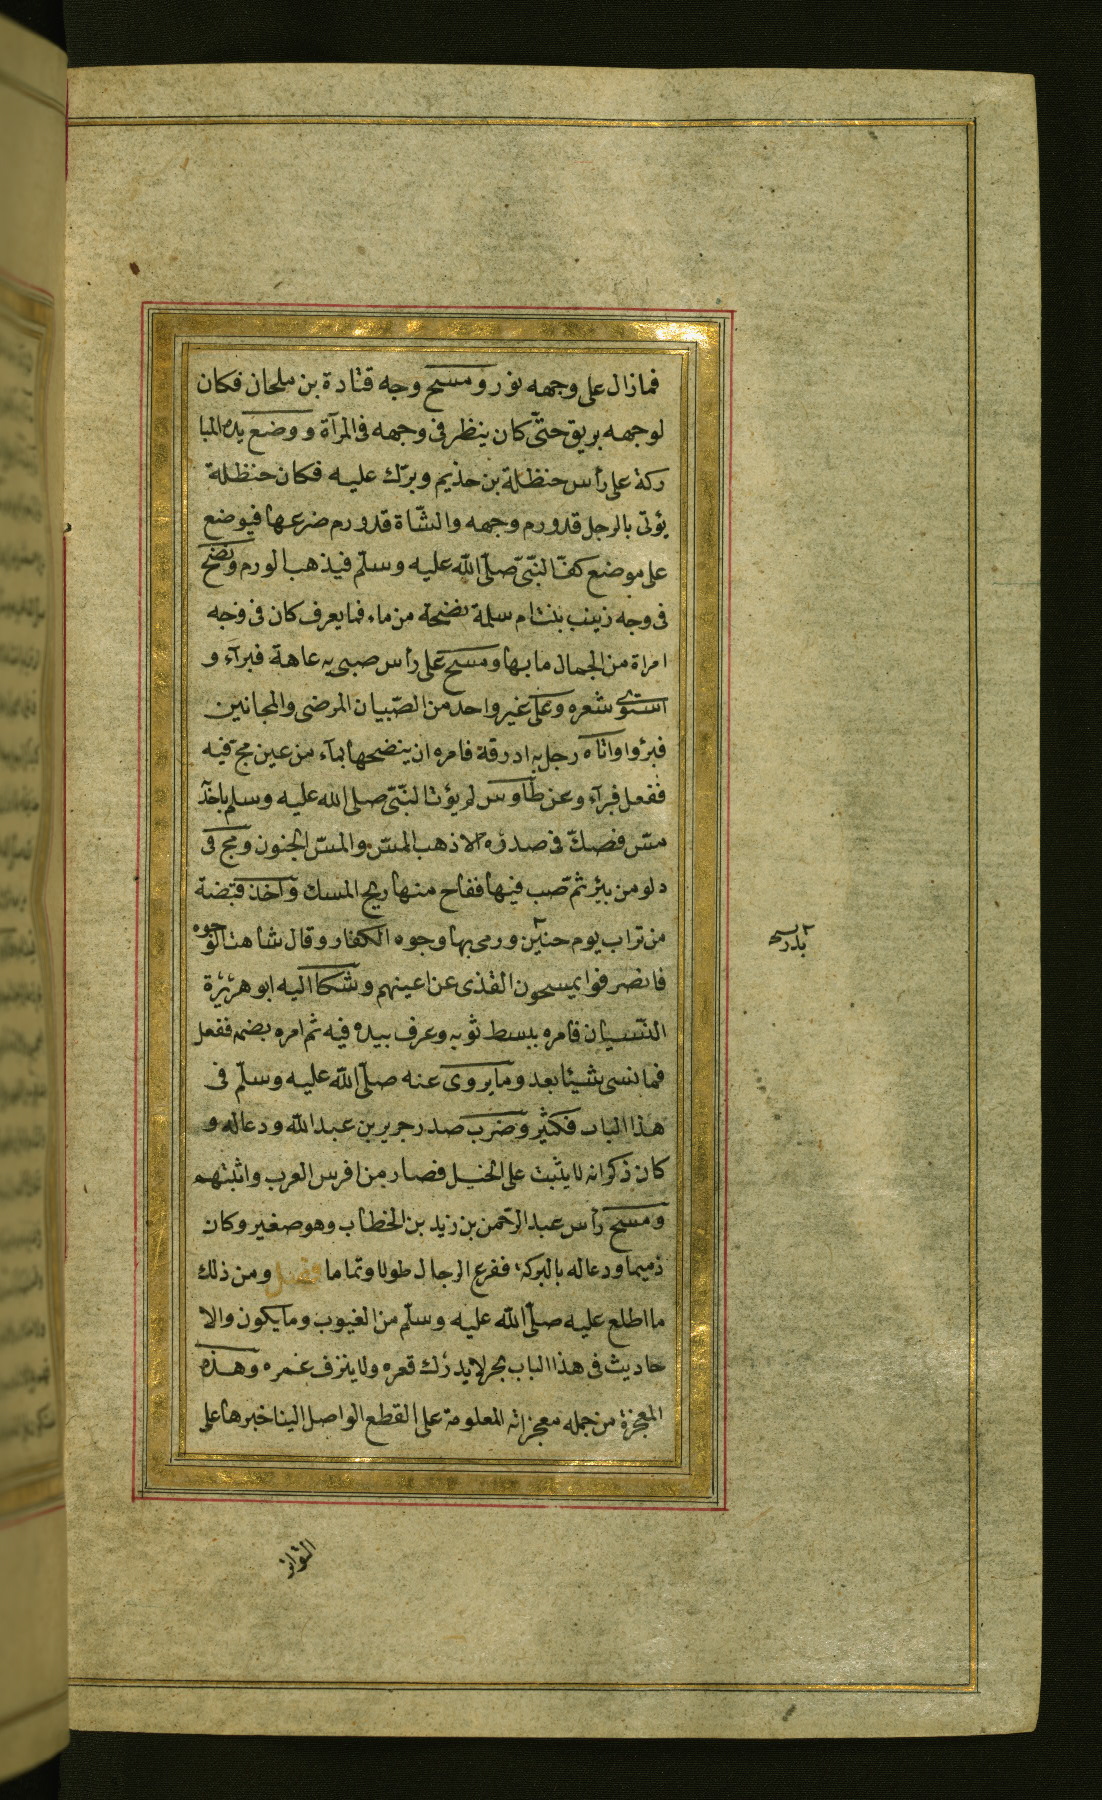 فمازال على وجهه نور ومسح وجه قتادة بن ملحان فكان
لوجهه بريق حتّى كان ينظر فى وجهه فى المرآة ووضع يده المبا
ركة على رأس حنظلة بن حذيم وبرّك عليه فكان حنظلة
يؤتى بالرجل قد ورم وجهه والشّاة قد ورم ضرعها فيوضع
على موضع كفّ النّبىّ صلّى الله عليه وسلّم فيذهب الورم ونضح
فى وجه زينب بنت ام سلمة نضحة من ماء فما يعرف كان فى وجه
امراة من الجمال ما بها ومسح على رأس صبى به عاهة فبرآء و
استوى شعره وعلى غير واحد من الصّبيان المرضى والمجانين
فبرؤا واتاه رجل به ادرة فامره ان ينضحها بمآء من عين مج فيه
ففعل فبرآء وعن طاوس لم يؤت النّبّى صلى الله عليه وسلم باحد
مسّ فصكّ فى صدره الا ذهب المسّ والمسّ الجنون ومج فى
دلو من بئر ثم صب فيها ففاح منها ريح المسك وآخذ قبضة
من تراب يوم حنين ورمى بها وجوه الكفار وقال شاهت الوجوه
بدر
فانصرفوا يمسحون القذى عن اعينهم وشكا اليه ابو هريرة
النّسيان فامره ببسط ثوبه وغرف بيده فيه ثم امره بضمه ففعل
فما نسى شيئا بعد وما يروى عنه صلّى الله عليه وسلّم فى
هذا الباب فكثير وضرب صدر جرير بن عبد الله ودعا له و
كان ذكر انه لا يثبت على الخيل فصار من افرس العرب واثبتهم
ومسح رأس عبد الرّحمن بن زيد بن الخطاب وهو صغير وكان
ذميما ودعا له بالبركة ففرع الرجال طولا وتماما فصل ومن ذلك
ما اطلع عليه صلّى الله عليه وسلّم من الغيوب وما يكون والا
حاديث فى هذا الباب بحر لا يدرك قعره ولا ينزف غمره وهذه
المعجزة من جمله معجزاته المعلومة على القطع الواصل الينا خبرها على
التواتر